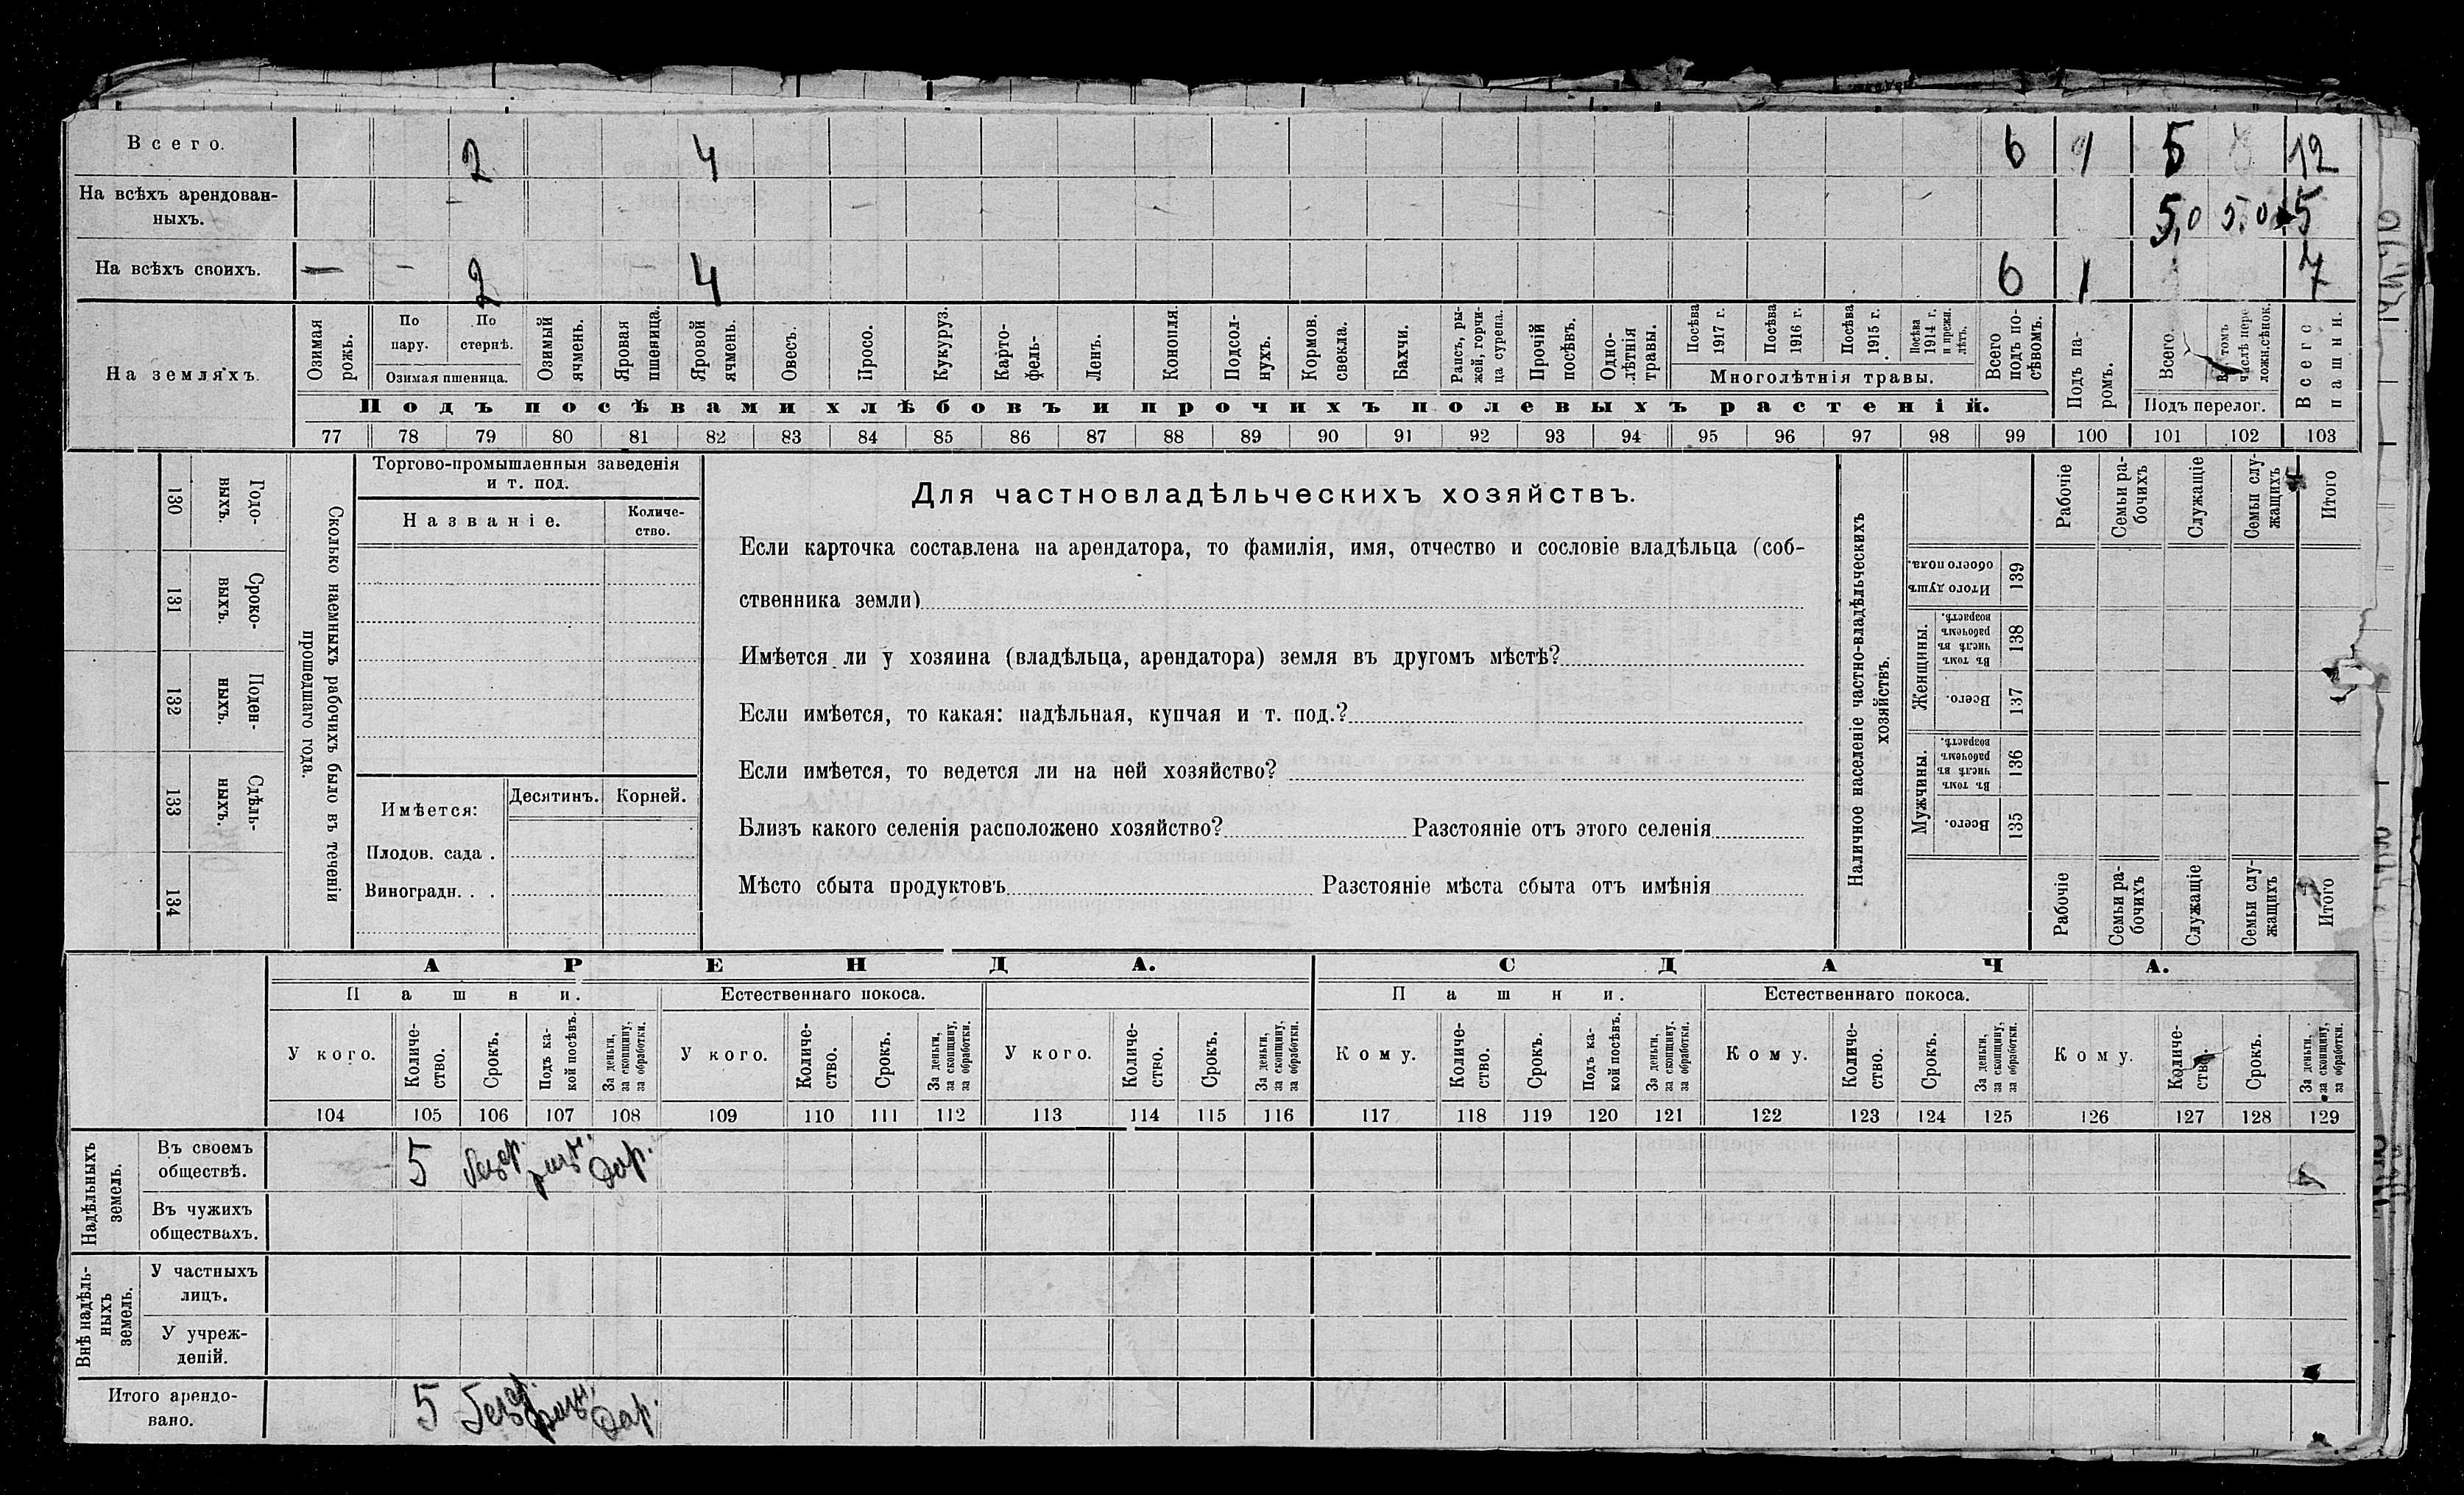 Всего. 2 4 6 1 5 12
На всѣхъ арендован-
ныхъ. 5,0 5,0 5
На всѣхъ своихъ. — — 2 — 4 6 1 7
На земляхъ.
Озимая рожь.
По пару.
По стернѣ.
Озимая пшеница.
Озимый ячмень.
Яровая пшеница.
Яровой ячмень.
Овесъ.
Просо.
Кукуруз.
Карто-
фель-
Ленъ.
Конопля.
Подсол-
нухъ.
Кормов.
свекла.
Бахчи.
Рапсъ, ры-
жей, горчи-
ца сурепа.
Прочій
посѣвъ.
Одно-
лѣтнія
травы.
Посѣва
1917 г.
Посѣва
1916 г.
Посѣва
1915 г.
Посѣва
1914 г.
и прежн.
лѣтъ.
Многолѣтнія травы.
Всего
подъ по-
сѣвомъ.
Подъ па-
ромъ.
Всего.
Въ томъ
числѣ пере
ложн.сѣнок.
Подъ перелог.
Всего
пашни.
Подъ посѣвами хлѣбовъ и прочихъ полевыхъ растеній.
77 78 79 80 81 82 83 84 85 86 87 88 89 90 91 92 93 94 95 96 97 98 99 100 101 102 103
130 Годо-
выхъ.
131 Сроко-
выхъ.
132 Поден-
ныхъ.
133 Сдѣль-
ныхъ.
134
Сколько наемныхъ рабочихъ было въ теченіи
прошедшаго года.
Торгово-промышленныя заведенія
и т. под.
Названіе.
Количе-
ство.
Имѣется:
Десятинъ. Корней.
Плодов. сада .
Виноградн. . .
Для частновладѣльческихъ хозяйствъ.
Если карточка составлена на арендатора, то фамилія, имя, отчество и сословіе владѣльца (соб-
ственника земли)
Имѣется ли у хозяина (владѣльца, арендатора) земля въ другомъ мѣстѣ?
Если имѣется, то какая: надѣльная, купчая и т. под.?
Если имѣется, то ведется ли на ней хозяйство?
Близъ какого селенія расположено хозяйство? Разстояніе отъ этого селенія
Мѣсто сбыта продуктовъ Разстояніе мѣста сбыта отъ имѣнія
Наличное населеніе частно-владѣльческихъ
хозяйствъ.
Рабочіе
Семьи ра-
бочихъ
Служащіе
Семьи слу-
жащихъ
Итого
Итого душъ
обоего пола.
139
Женщины.
Въ томъ
числѣ въ
рабочемъ
возрастѣ.
138
Всего.
137
Мужчины.
Въ томъ
числѣ въ
рабочемъ
возрастѣ.
136
Всего.
135
Рабочіе
Семьи ра-
бочихъ
Служащіе
Семьи слу-
жащихъ
Итого
АРЕНДА. СДАЧА.
Пашни. Естественнаго покоса. Пашни. Естественнаго покоса.
У кого.
Количе-
ство.
Срокъ.
Подъ ка-
кой посѣвъ.
За деньги,
за скопщину,
за обработки.
У кого.
Количе-
ство.
Срокъ.
За деньги,
за скопщину,
за обработки.
У кого.
Количе-
ство.
Срокъ.
За деньги,
за скопщину,
за обработки.
Кому.
Количе-
ство.
Срокъ.
Подъ ка-
кой посѣвъ.
За деньги,
за скопщину.
за обработки.
Кому.
Количе-
ство.
Срокъ.
За деньги,
за скопщину,
за обработки.
Кому.
Количе-
ство.
Срокъ.
За деньги,
за скопщину,
за обработки.
104 105 106 107 108 109 110 111 112 113 114 115 116 117 118 119 120 121 122 123 124 125 126 127 128 129
Надѣльныхъ
земель.
Въ своемъ
обществѣ. 5 дар.
Въ чужихъ
обществахъ.
Внѣ надѣль-
ныхъ
земель.
У частныхъ
лицъ.
У учреж-
деній.
Итого арендо-
вано. 5 дар.